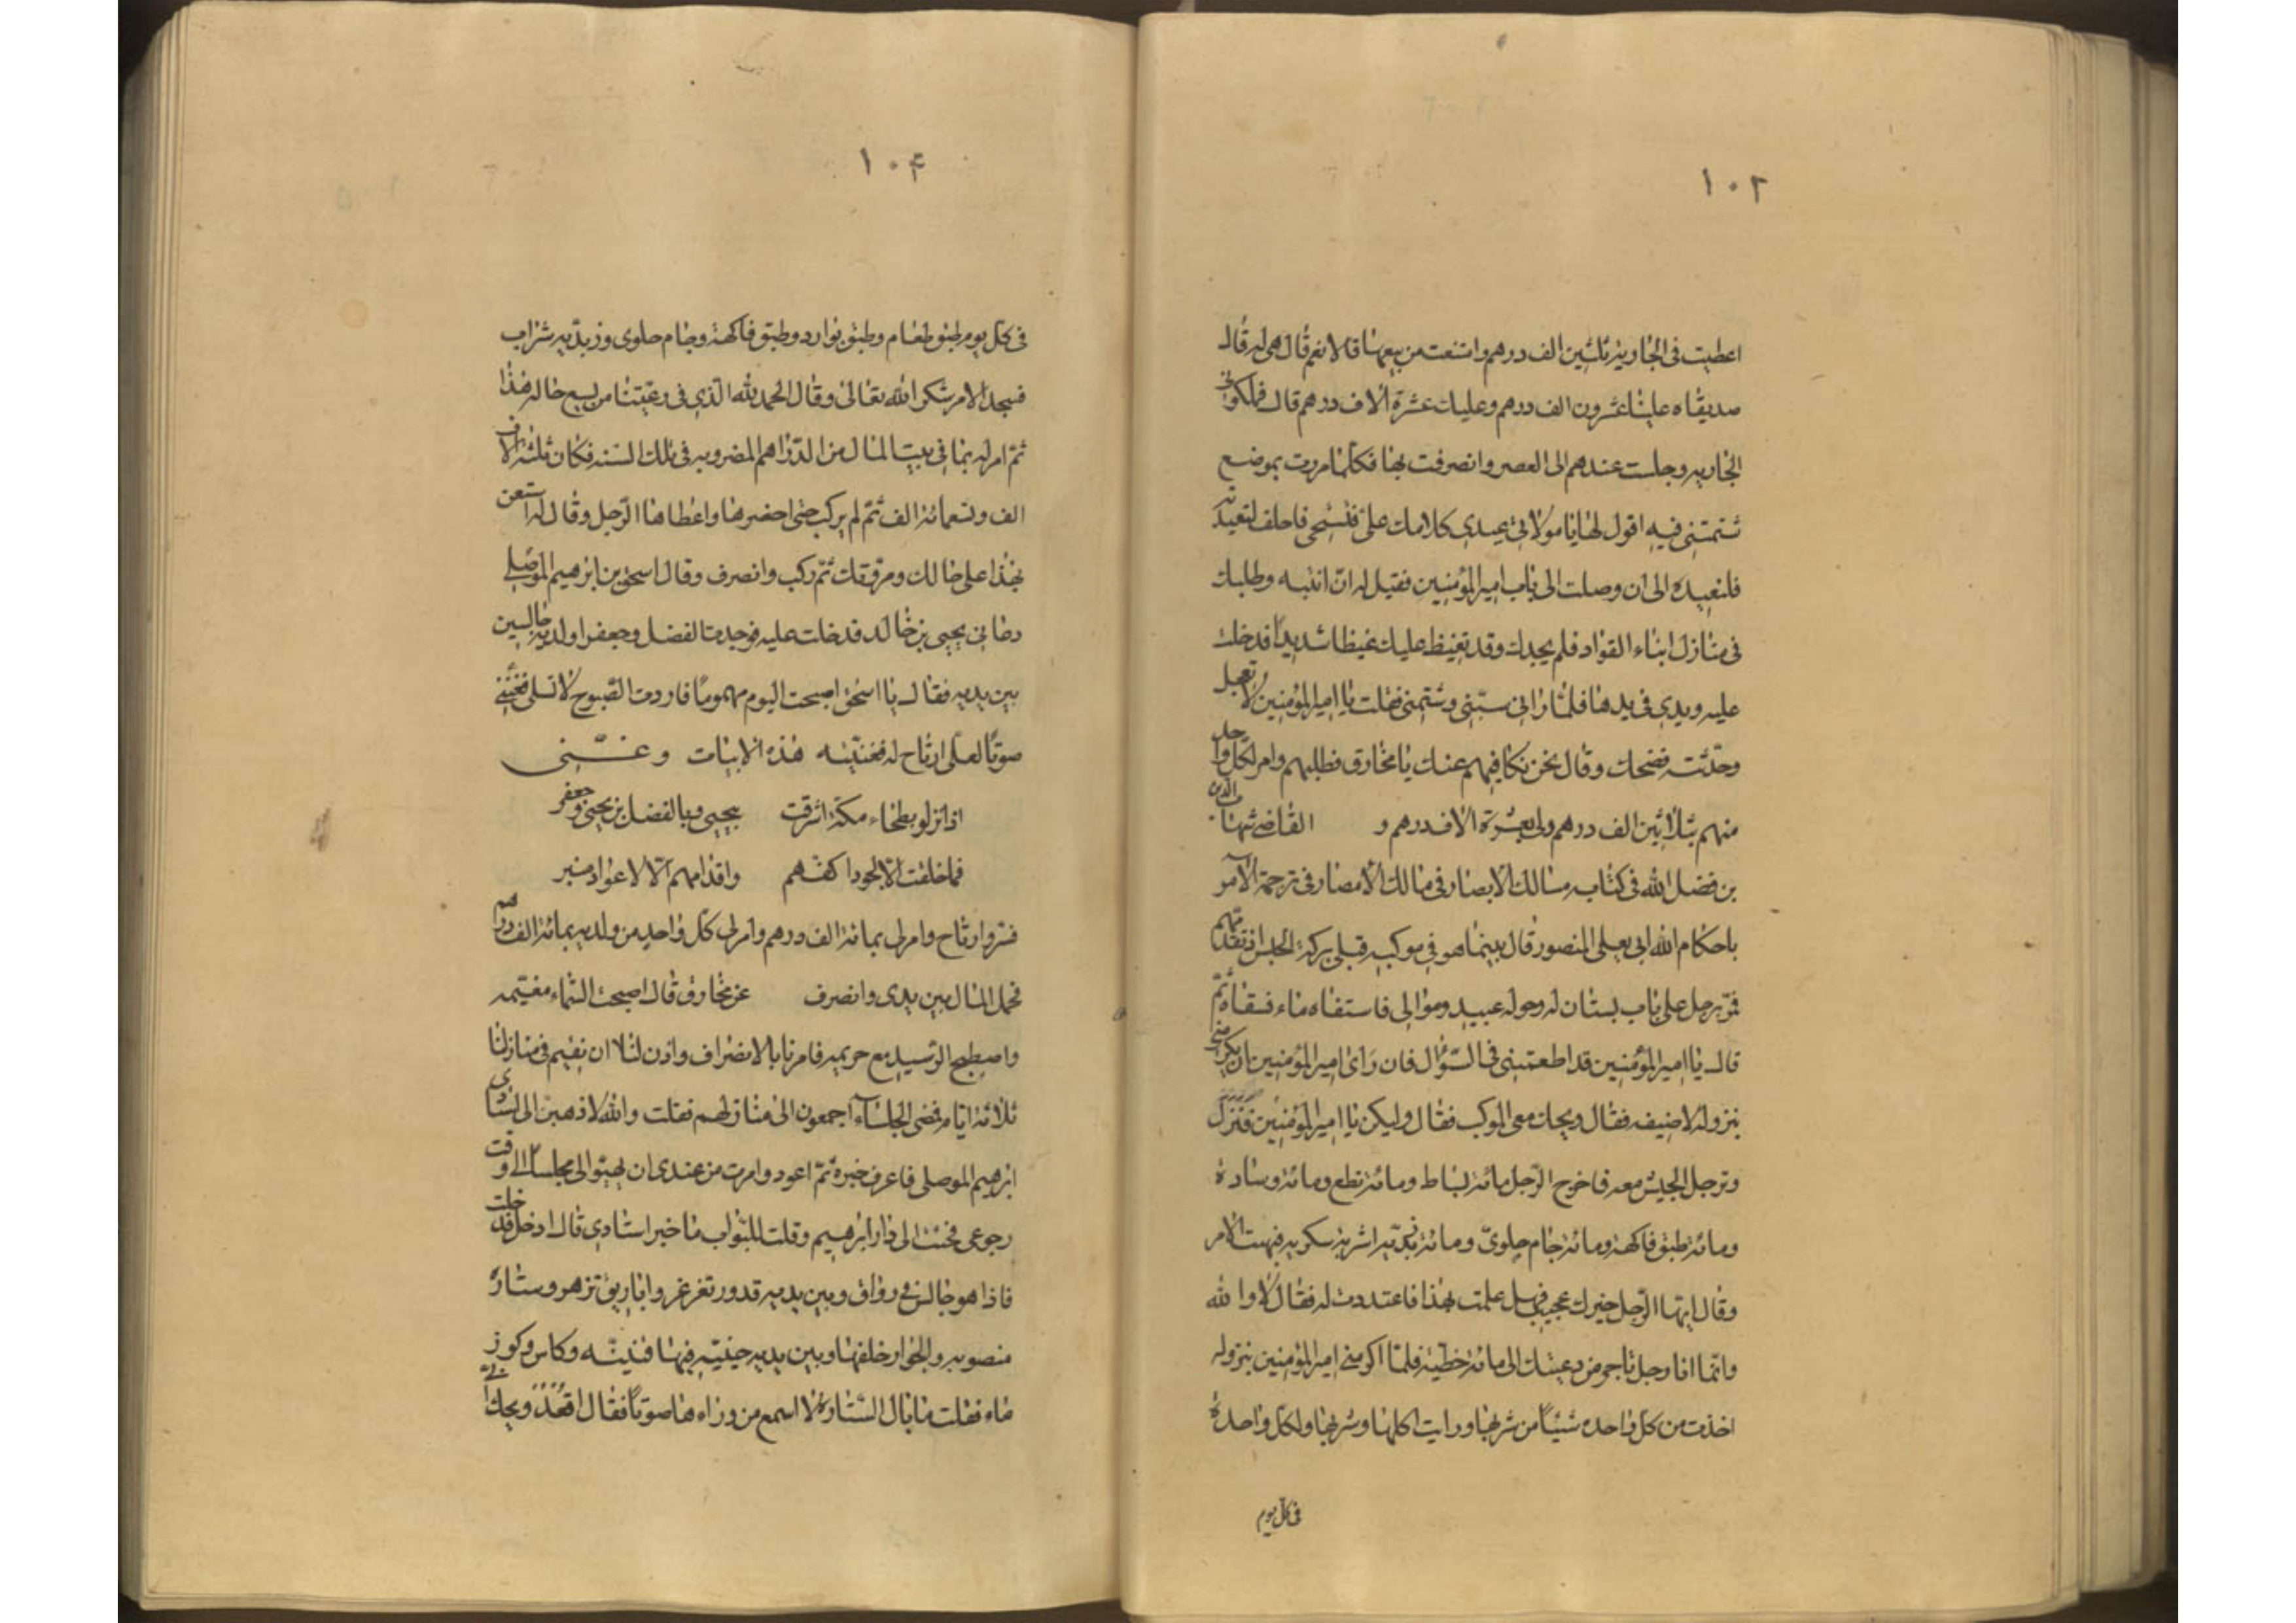 ١٠٢
اعطيت فى الجاوية ثلثين الف درهم وامتنعت من بيعها قالا نعم قال هى له قال
صديقاه علينا عشرون الف درهم وعليك عشرة آلاف درهم قال فملكونى
الجاريه وجلست عندهم الى العصر وانصرفت بها فكلما مررت بموضع
شتمتنى فيه اقول لها يا مولاتى عيدى كلامك علىّ فتستحى فاحلف لتعيدنه
فلتعيده الى ان وصلت الى باب امير المؤمنين فقيل له انه انتبه وطلبك
فى منازل ابناء القواد فلم يجدك وقد تغيظ عليك غيظا شديداً فدخلت
عليه ويدى فى يدها فلما رانى سبّنى وشتمنى فقلت يا امير المؤمنين لا تعجل
وحدّثته فضحك وقال نحن نكافيهم عنك يا مخارق فطلبهم وامر لكل واحد
منهم بثلاثين الف درهم ولى بعشرة الاف درهم و القاضى شهاب الدين
بن فضل الله فى كتابه مسالك الابصار فى ممالك الامصار فى ترجمة الآمر
باحكام الله ابى يعلى المنصور قال بينما هو فى موكبه قبلى بركة الحبش اذ تقدمهم
فمرّ برجل على باب بستان له وحوله عبيد وموالى فاستقاه ماء فسقاه ثمّ
قال يا امير المؤمنين قد اطعمتنى فى السّؤال فان رَاى امير المؤمنين ان يكرمنى
بنزوله لاضيفه فقال ويحك معى الموكب فقال وليكن يا امير المؤمنين فنزل
وترجل الجيش معه فاخرج الرّجل مائة بساط ومائة نطع ومائة وسادة
ومائة طبق فاكهة ومائة جام حلوىّ ومائة زبدّيه اشربة سكريه فبهت الآمر
وقال ايها الرّجل خبرك عجيب فهل علمت بهذا فاعتددت له فقال لا والله
وانّما انا رجل تاجر من رعيتك لى مائة خطية فلمّا اكرمنى امير المؤمنين بنزوله
اخذت من كل واحده شيئاً من شربها ورايت اكلها وشربها ولكل واحدة
فى كل يوم
١٠۴
فى كل يوم طبق طعام وطبق بوارد وطبق فاكهة وجام حلوى وزبديه شراب
فسجد الامر شكر الله تعالى وقال الحمد لله الّذى فى رعيّتنا من يسع حاله هذا
ثم امر له بما فى بيت المال من الدّراهم المضروبه فى تلك السنه فكان ثلثة الاف
الف وتسعمائة الف ثمّ لم يركب حتى احضرها واعطاها الرّجل وقال له استعن
بهذا على حالك ومروّتك ثمّ ركب وانصرف وقال اسحق بن ابرهيم الموصلى
دعانى يحيى بن خالد فدخلت عليه فوجدت الفضل وجعفرا ولديه جالسين
بين يديه فقال يا اسحق اصبحت اليوم مهموماً فاردت الصّبوح لاتسلى فغنّنى
صوتاً لعلى ارتاح له فغنيته هذه الابيات وغنّنى
اذا نزلو بطحاء مكة اشرقت بيحيى وبالفضل بن يحيى وجعفر
فما خلقت الّا لجود اكفهم واقدامهم الّا لاعواد منبر
فسرّ وارتاح وامر لى بمائة الف درهم وامر لى كل واحد من ولديه بمائة الف درهم
فحمل المال بين يدى وانصرف عن مخارق قال اصبحت السّماء مغيّمه
واصطبح الرّشيد مع حريمه فامرنا بالانصراف واذن لنا ان نقيم فى منازلنا
ثلاثة ايّام فمضى الجلساء اجمعون الى منازلهم فقلت والله لاذهبنّ الى استادى
ابرهيم الموصلى فاعرف خبره ثمّ اعود وامرت من عندى ان يهيّو الى مجلسا الى وقت
رجوعى فجئت الى دار ابرهيم وقلت للبّواب ما خبر استادى قال ادخل فدخلت
فاذا هو جالس فى رواق وبين يديه قدور تغرغر واباريق تزهر وستارة
منصوبه والجوار خلفها وبين يديه صينيّه فيها قنينّه وكاس وكوز
ماء فقلت ما بال السّتارة لا اسمع من وراءها صوتاً فقال اقعد ويحك